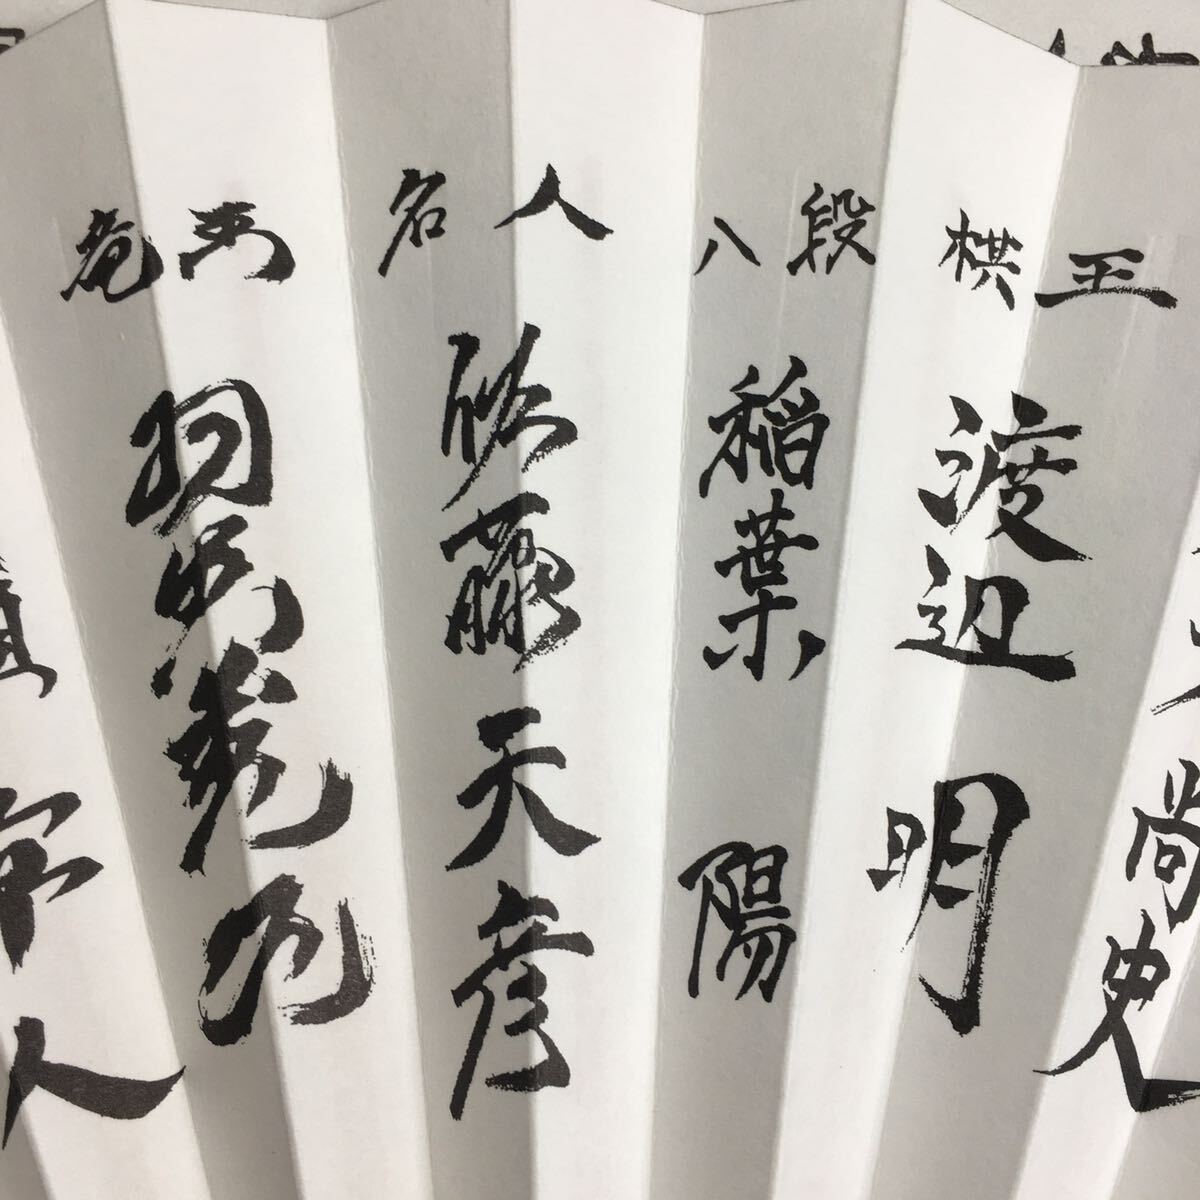 尚史
棋王
渡辺 明
八段
稲葉 陽
名人
佐藤天彦
竜王
羽生善治
人